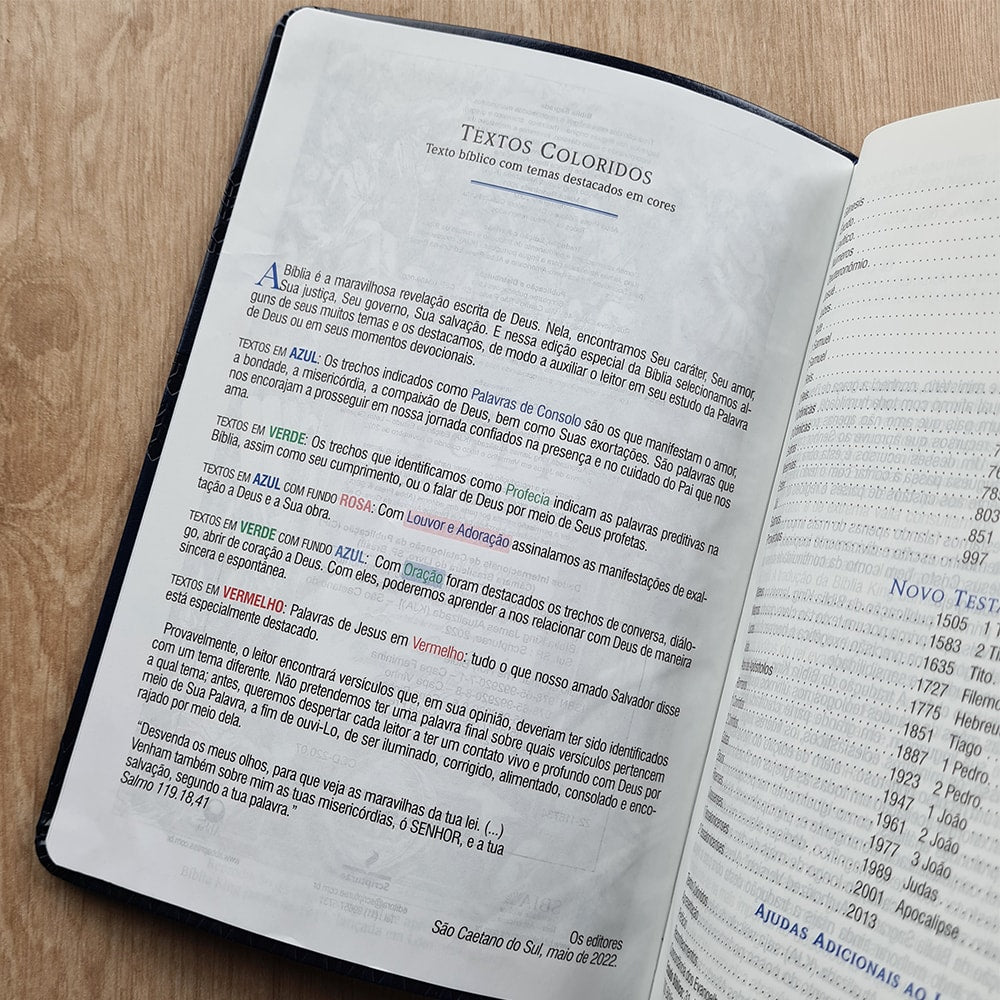 TEXTOS COLORIDOS
Texto bíblico com temas destacados em cores
A Bíblia é a maravilhosa revelação escrita de Deus. Nela, encontramos Seu caráter, Seu amor,
Sua justiça, Seu governo, Sua salvação. E nessa edição especial da Bíblia selecionamos al-
guns de seus muitos temas e os destacamos, de modo a auxiliar o leitor em seu estudo da Palavra
de Deus ou em seus momentos devocionais.
TEXTOS EM AZUL: Os trechos indicados como Palavras de Consolo são os que manifestam o amor,
a bondade, a misericórdia, a compaixão de Deus, bem como Suas exortações. São palavras que
nos encorajam a prosseguir em nossa jornada confiados na presença e no cuidado do Pai que nos
ama.
TEXTOS EM VERDE: Os trechos que identificamos como Profecia indicam as palavras preditivas na
Bíblia, assim como seu cumprimento, ou o falar de Deus por meio de Seus profetas.
TEXTOS EM AZUL COM FUNDO ROSA: Com Louvor e Adoração assinalamos as manifestações de exal-
tação a Deus e a Sua obra.
TEXTOS EM VERDE COM FUNDO AZUL: Com Oração foram destacados os trechos de conversa, diálo-
go, abrir de coração a Deus. Com eles, poderemos aprender a nos relacionar com Deus de maneira
sincera e espontânea.
TEXTOS EM VERMELHO: Palavras de Jesus em Vermelho: tudo o que nosso amado Salvador disse
está especialmente destacado.
Provavelmente, o leitor encontrará versículos que, em sua opinião, deveriam ter sido identificados
com um tema diferente. Não pretendemos ter uma palavra final sobre quais versículos pertencem
a qual tema; antes, queremos despertar cada leitor a ter um contato vivo e profundo com Deus por
meio de Sua Palavra, a fim de ouvi-Lo, de ser iluminado, corrigido, alimentado, consolado e enco-
rajado por meio dela.
“Desvenda os meus olhos, para que veja as maravilhas da tua lei. (...)
Venham também sobre mim as tuas misericórdias, ó SENHOR, e a tua
salvação, segundo a tua palavra.”
Salmo 119.18,41
Os editores
São Caetano do Sul, maio de 2022.
803
851
997
NOVO TEST
1505 1 T
1583 2 Ti
1635 Tito.
1727 Filem
1775 Hebreu
1851 Tiago
1887 1 Pedro.
1923 2 Pedro.
1947 1 João
1961 2 João
1977 3 João
1989 Judas
2001 Apocalipse
2013
AJUDAS ADICIONAIS AO